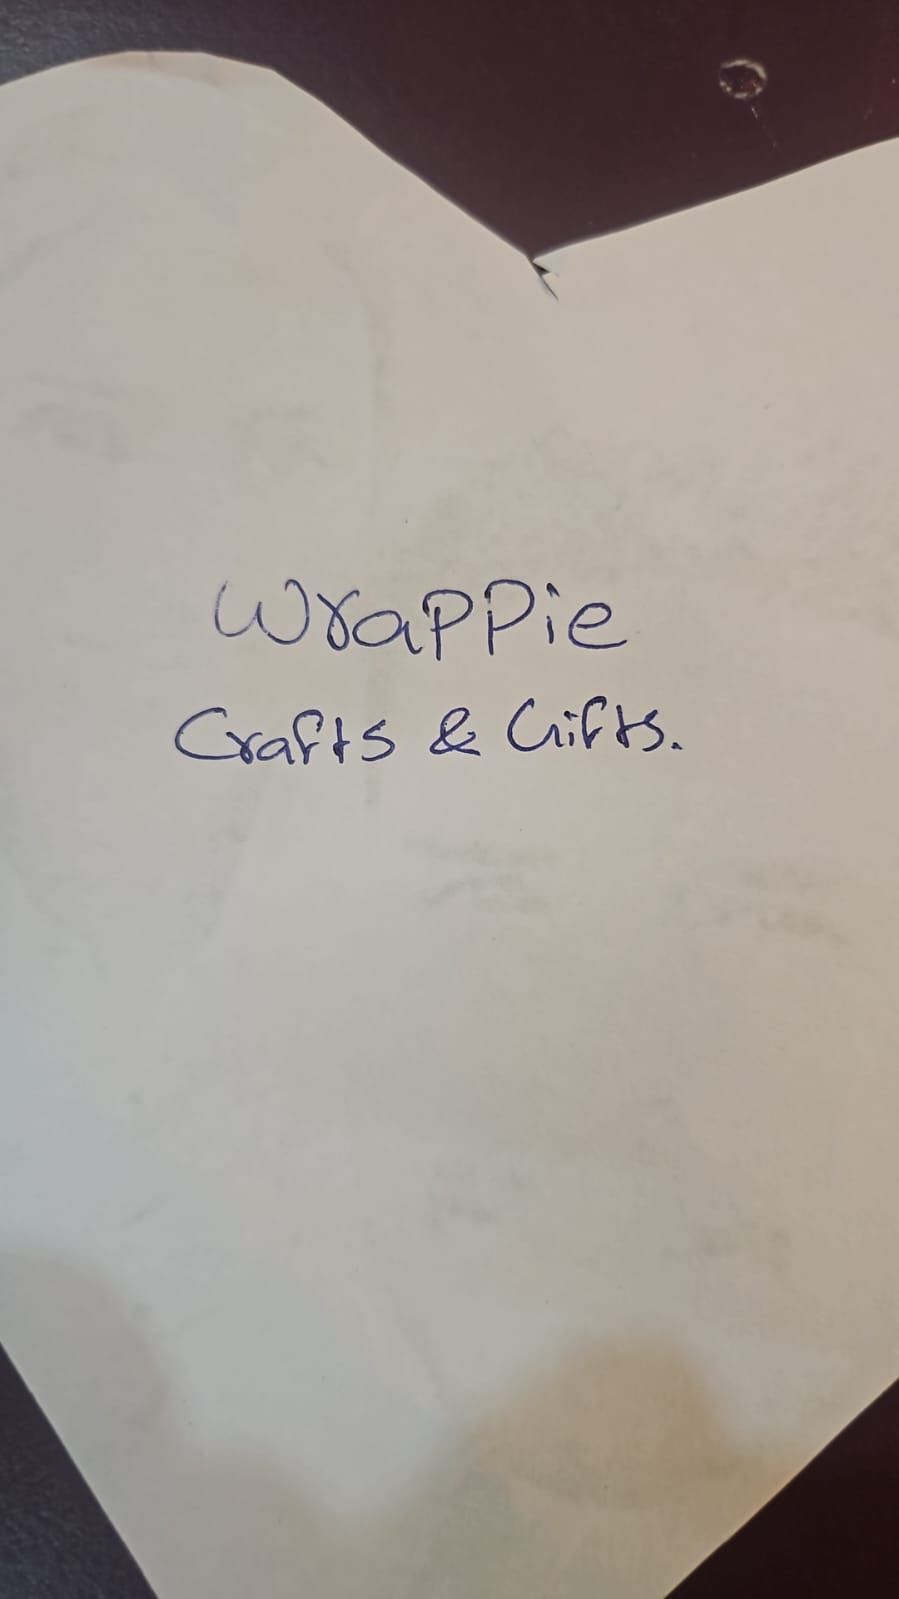 Wrappie
Crafts & Gifts.